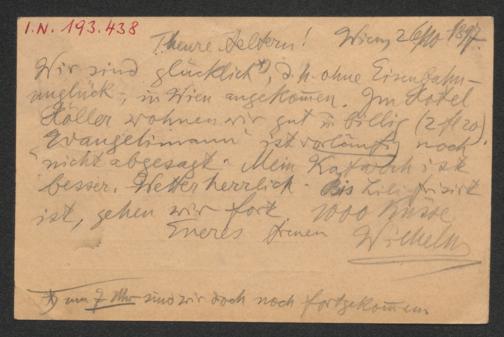 I.N. 193.438
Theure Aeltern! Wien, 26/10 1897.
Wir sind glücklich *), d.h. ohne Eisenbahn-
unglück -, in Wien angekommen. Im Hotel
Höller wohnen wir gut u. billig (2 fl 20).
"Evangelimann" ist vorläufig noch
nicht abgesagt. Mein Katarrh ist
besser. Wetter herrlich. Bis Lili frisirt
ist, gehen wir fort 1000 Küsse
Eueres treuen Wilhelm
*) um 7 Uhr sind wir doch noch fortgekommen